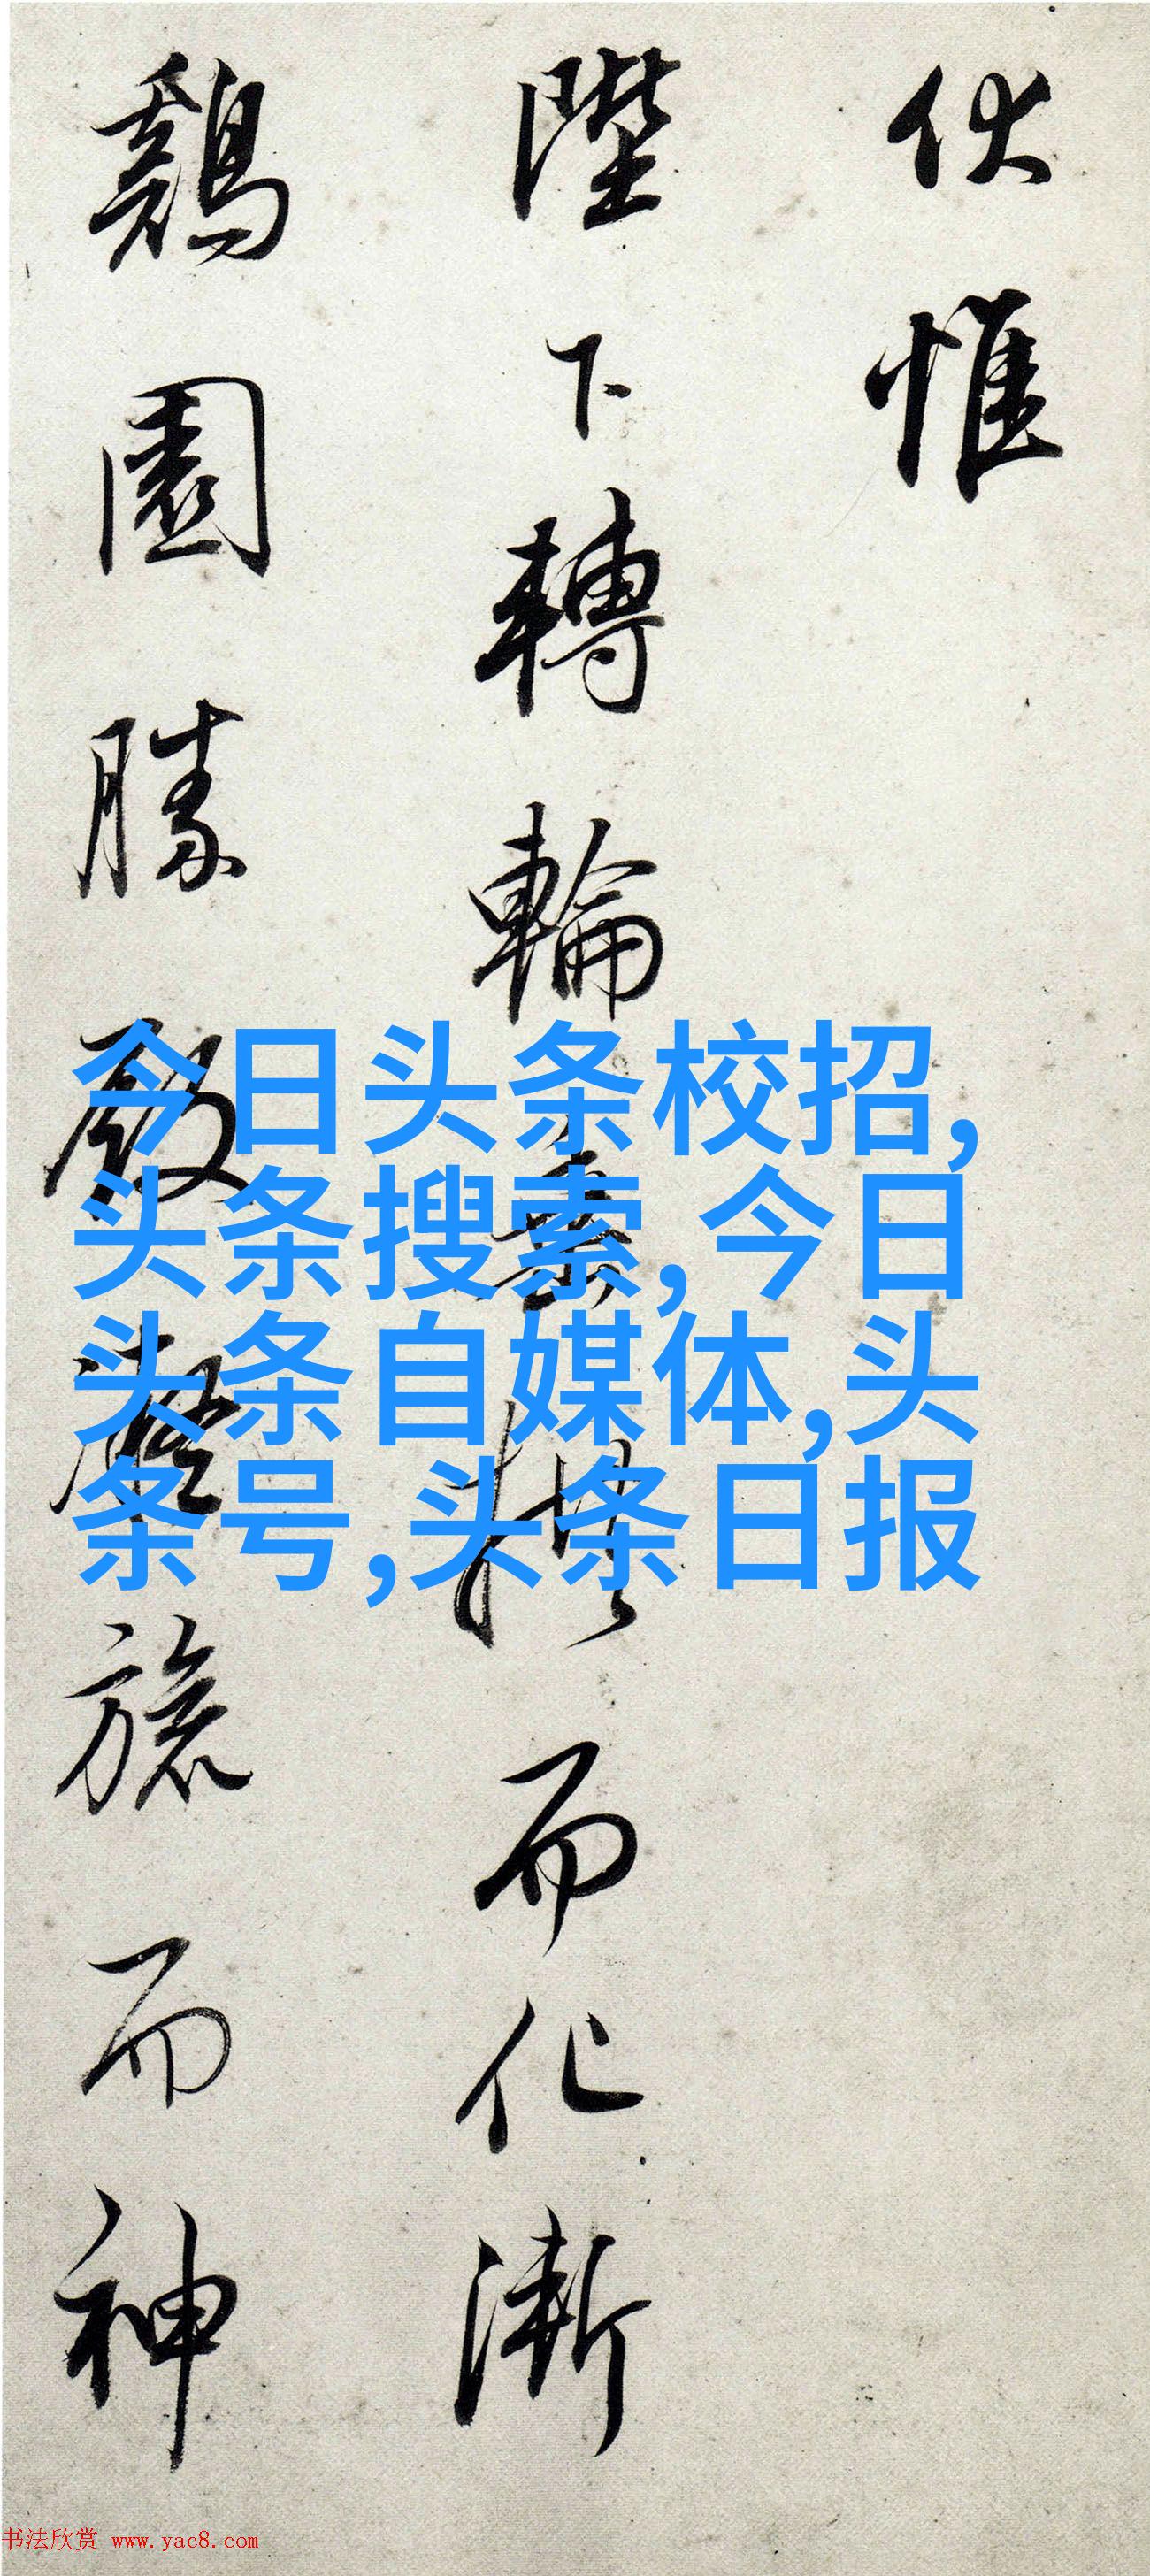 伏惟
陛下轉輪垂拱而化漸
鷄園勝殿凝旒而神
今日头条校招,
头条搜索,今日
头条自媒体,头
条号,头条日报
书法欣赏 www.yac8.com